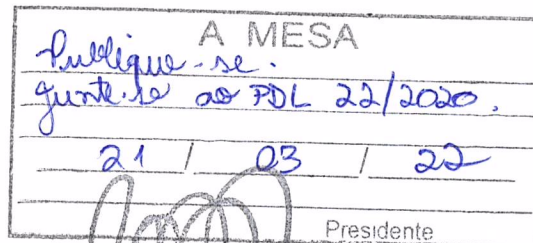 A MESA
Publique-se.
Junte-se ao PDL 22/2020.
21 / 03 / 22
Presidente